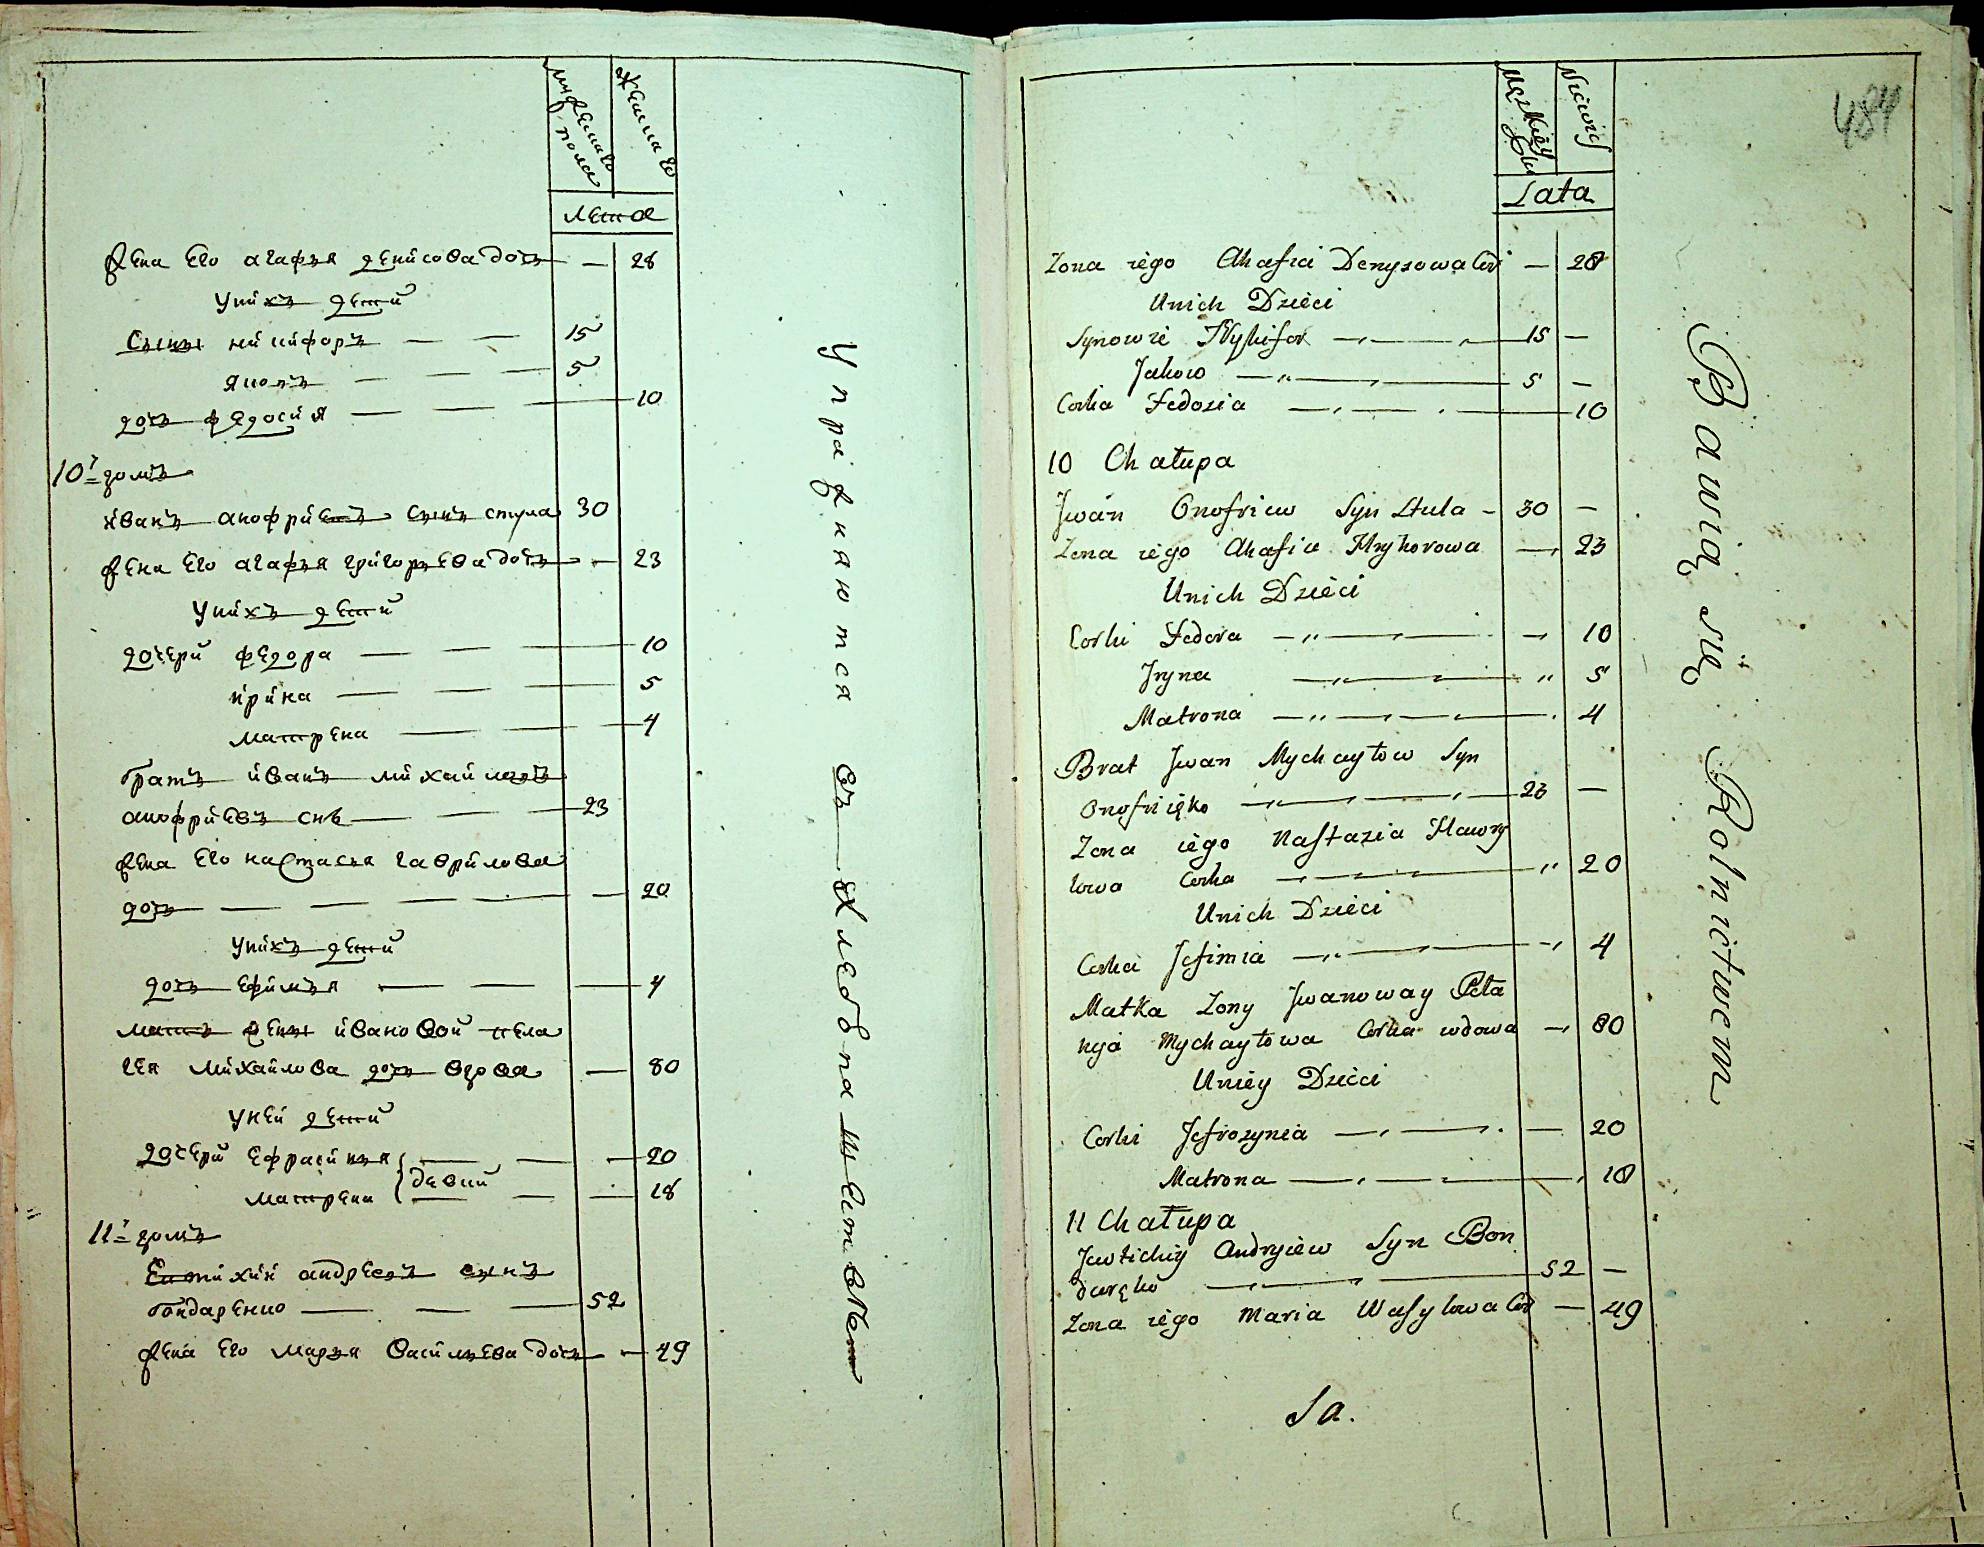 мужеска
пола
женска
лета
жена его агафья денисова дочь — 28
у них дети
сыны никифоръ — — 15
яковъ — — — 5
дочь федосия — — — 10
10й домъ
иванъ анофриевъ сынъ стула 30
жена его агафья григорьева дочь — 23
у нихъ дети
дочери федора — — — 10
ирина — — — 5
матрена — — — 4
братъ иванъ михайловъ
анофриевъ снъ — — — 23
жена его настасья гаврилова
дочь — — — — — 20
у нихъ дети
дочь ефимья — — — 4
мать жены ивановой пела
гея михайлова дочь вдова — 80
у ней дети
дочери ефросинья — — — 20
матрена девки — — — 18
11й домъ
Евтихий андреевъ сынъ
бондаренко — — — 52
жена его марья васильева дочь — 49
упражняются въ хлебопашестве
484
Męzkiey
Płci
Niewies
Lata
Zona iego Ahafia Denysowa Cor — 28
Unich Dzieci
Synowie Nykifor — 15 —
Jakow — 5 —
Corka Fedosia — 10
10 Chałupa
Jwan Onofriew Syn Stula - 30 —
Zona iego Ahafia Hryhorowa — 23
Unich Dzieci
Corki Fedora — 10
Jryna — " 5
Matrona — 4
Brat Jwan Mychayłow Syn
Onofrięko — 23 —
Zona iego Nastazia Hawry
lowa Corka — " 20
Unich Dzieci
Corka Jefimia — 4
Matka Zony Jwanoway Pela
hyja Mychayłowa Corka wdowa — 80
Uniey Dzieci
Corki Jefrozynia — 20
Matrona — 18
11 Chałupa
Jewtichiy Andryiew Syn Bon
daręko — 52 —
Zona iego Maria Wasylowa Cor — 49
Bawią się Rolnictwem
Sa.